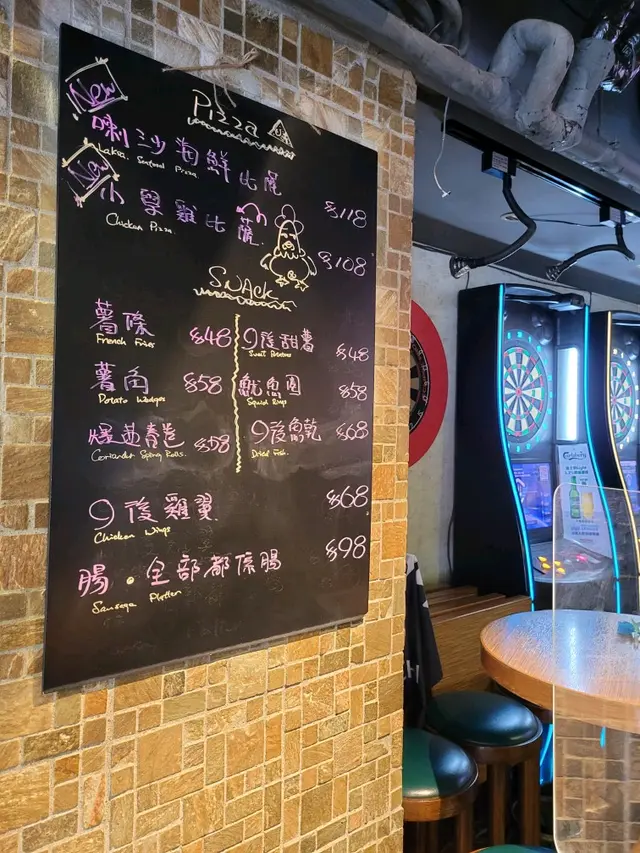 New
Pizza
喇沙海鮮比薩
Laksa Seafood Pizza
$118
New
小學雞比薩
Chicken Pizza
$108
Snack
薯條 $48
French Fries
9後甜薯 $48
Sweet Potatoes
薯角 $58
Potato Wedges
魷魚圈 $58
Squid Rings
爆芫春卷 $58
Coriander Spring Rolls
9後魚乾 $68
Dried Fish
9後雞翼 $68
Chicken Wings
腸。全部都係腸 $98
Sausage Platter
Carlsberg